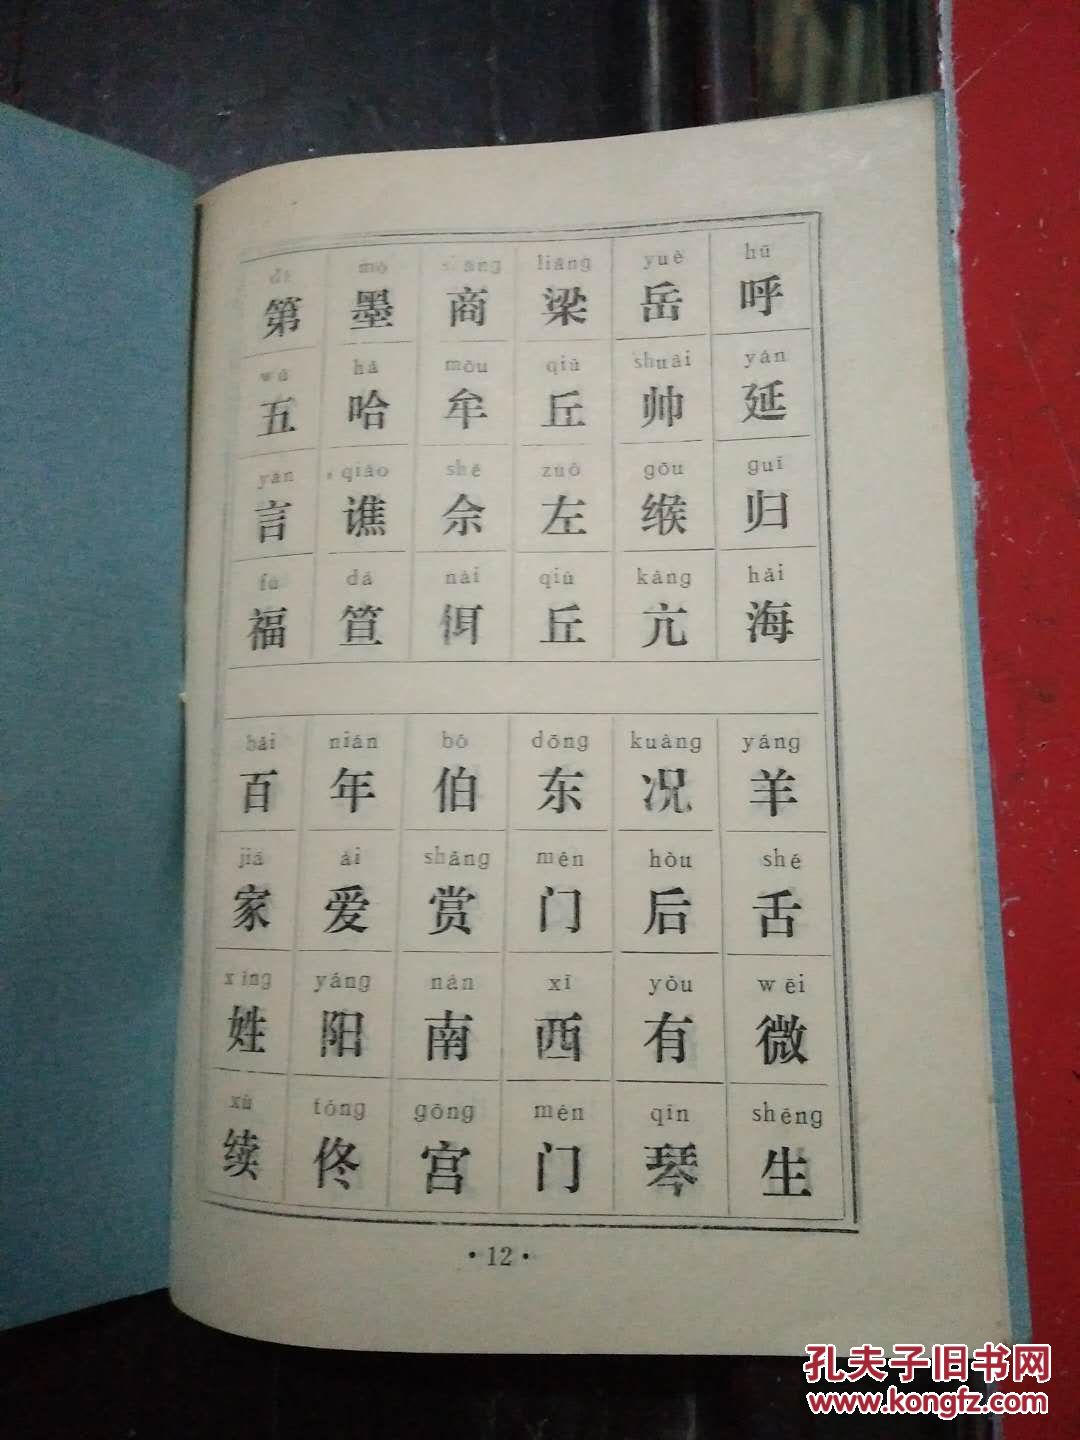 hū yán guī hǎi
呼延归海
yáng shé wēi shēng
羊舌微生
yuè shuài gōu kàng
岳帅缑亢
kuàng hòu yǒu qín
况后有琴
liáng qiū zuǒ qiū
梁丘左丘
dōng mén xī mén
东门西门
shāng mōu shé nài
商牟佘佴
bó shǎng nán gōng
伯赏南宫
mò hǎ qiáo dá
墨哈谯笪
nián ài yáng tóng
年爱阳佟
dì wǔ yán fú
第五言福
bǎi jiā xìng xù
百家姓续
·12·
孔夫子旧书网
www.kongfz.com